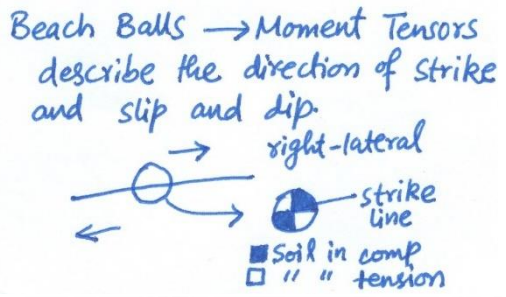 Beach Balls → Moment Tensors
describe the direction of strike
and slip and dip.
right-lateral
strike
line
Soil in comp
" " tension